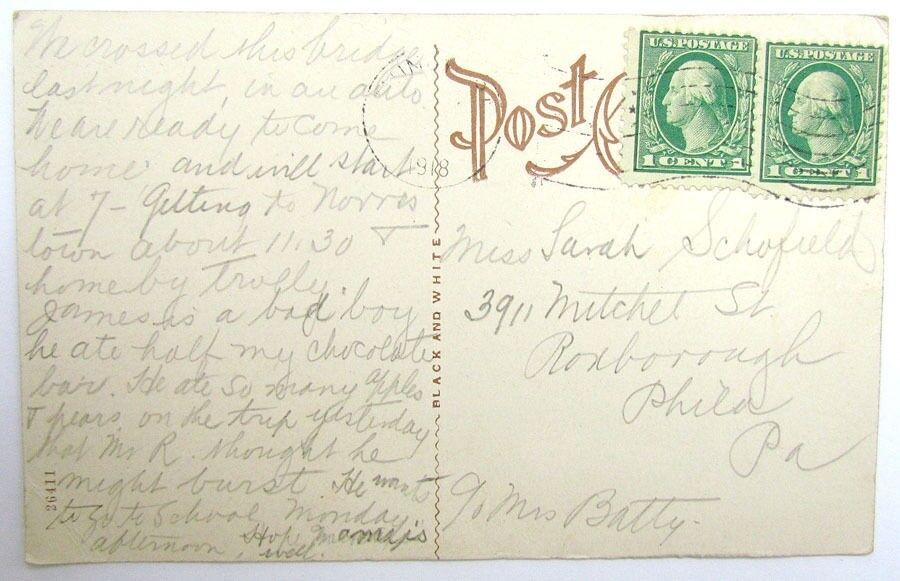 We crossed this bridge
last night, in an auto
We are ready to come
home and will start
at 7 - Getting to Norris
town about 11.30 &
home by trolly.
James is a bad boy
he ate half my chocolate
bar. He ate so many apples
& pears on the trip yesterday
that Mr R. thought he
might burst He wants
to go to School Monday
afternoon, Hope Mama is
well.
26411
BLACK AND WHITE
1918
Post C
U.S. POSTAGE
1 CENT 1
U.S. POSTAGE
1 CENT 1
Miss Sarah Schofield
3911 Mitchel St
Roxborough
Phila
Pa
c/o Mrs Batty.